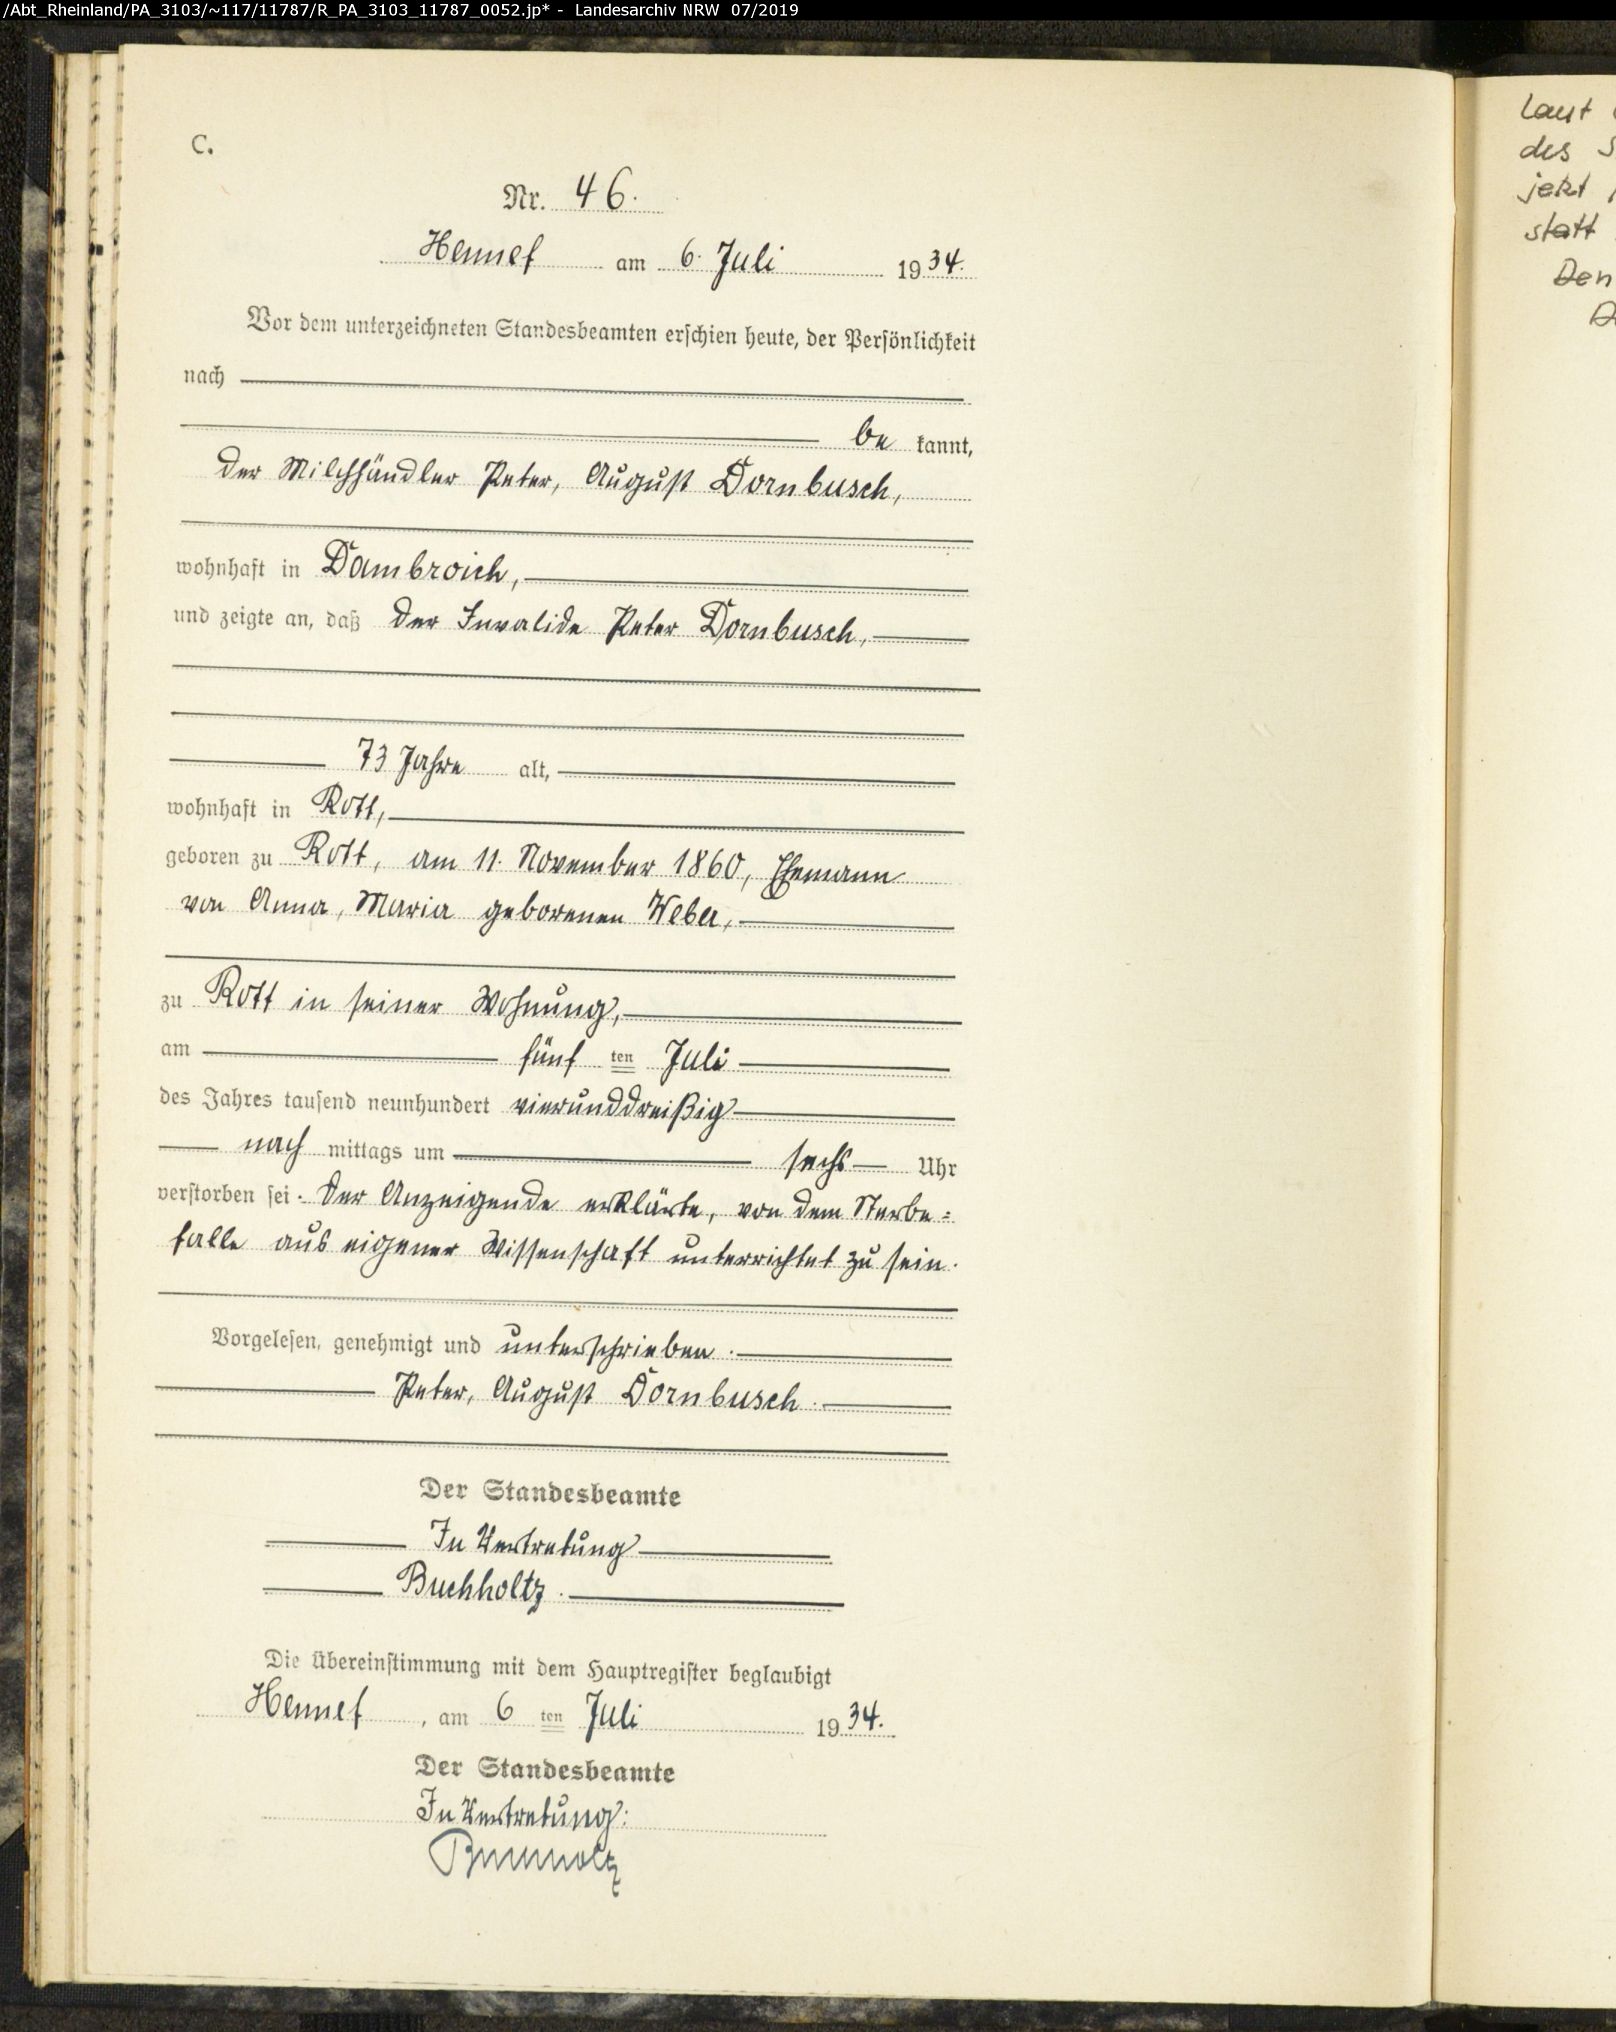 /Abt_Rheinland/PA_3103/~117/11787/R_PA_3103_11787_0052.jp* - Landesarchiv NRW 07/2019
C.
Nr. 46.
Hennef am 6. Juli 1934.
Vor dem unterzeichneten Standesbeamten erschien heute, der Persönlichkeit
nach
be kannt,
der Milchhändler Peter, August Dornbusch,
wohnhaft in Dambroich,
und zeigte an, daß der Invalide Peter Dornbusch,
73 Jahre alt,
wohnhaft in Rott,
geboren zu Rott, am 11. November 1860, Ehemann
von Anna, Maria geborenen Weber,
zu Rott in seiner Wohnung,
am fünf ten Juli
des Jahres tausend neunhundert vierunddreißig
nach mittags um sechs Uhr
verstorben sei. Der Anzeigende erklärte, von dem Sterbe=
falle aus eigener Wissenschaft unterrichtet zu sein.
Vorgelesen, genehmigt und unterschrieben.
Peter, August Dornbusch.
Der Standesbeamte
In Vertretung
Buchholtz.
Die Übereinstimmung mit dem Hauptregister beglaubigt
Hennef, am 6 ten Juli 1934.
Der Standesbeamte
In Vertretung:
Buchholtz
Laut
des
jetzt
statt
Den